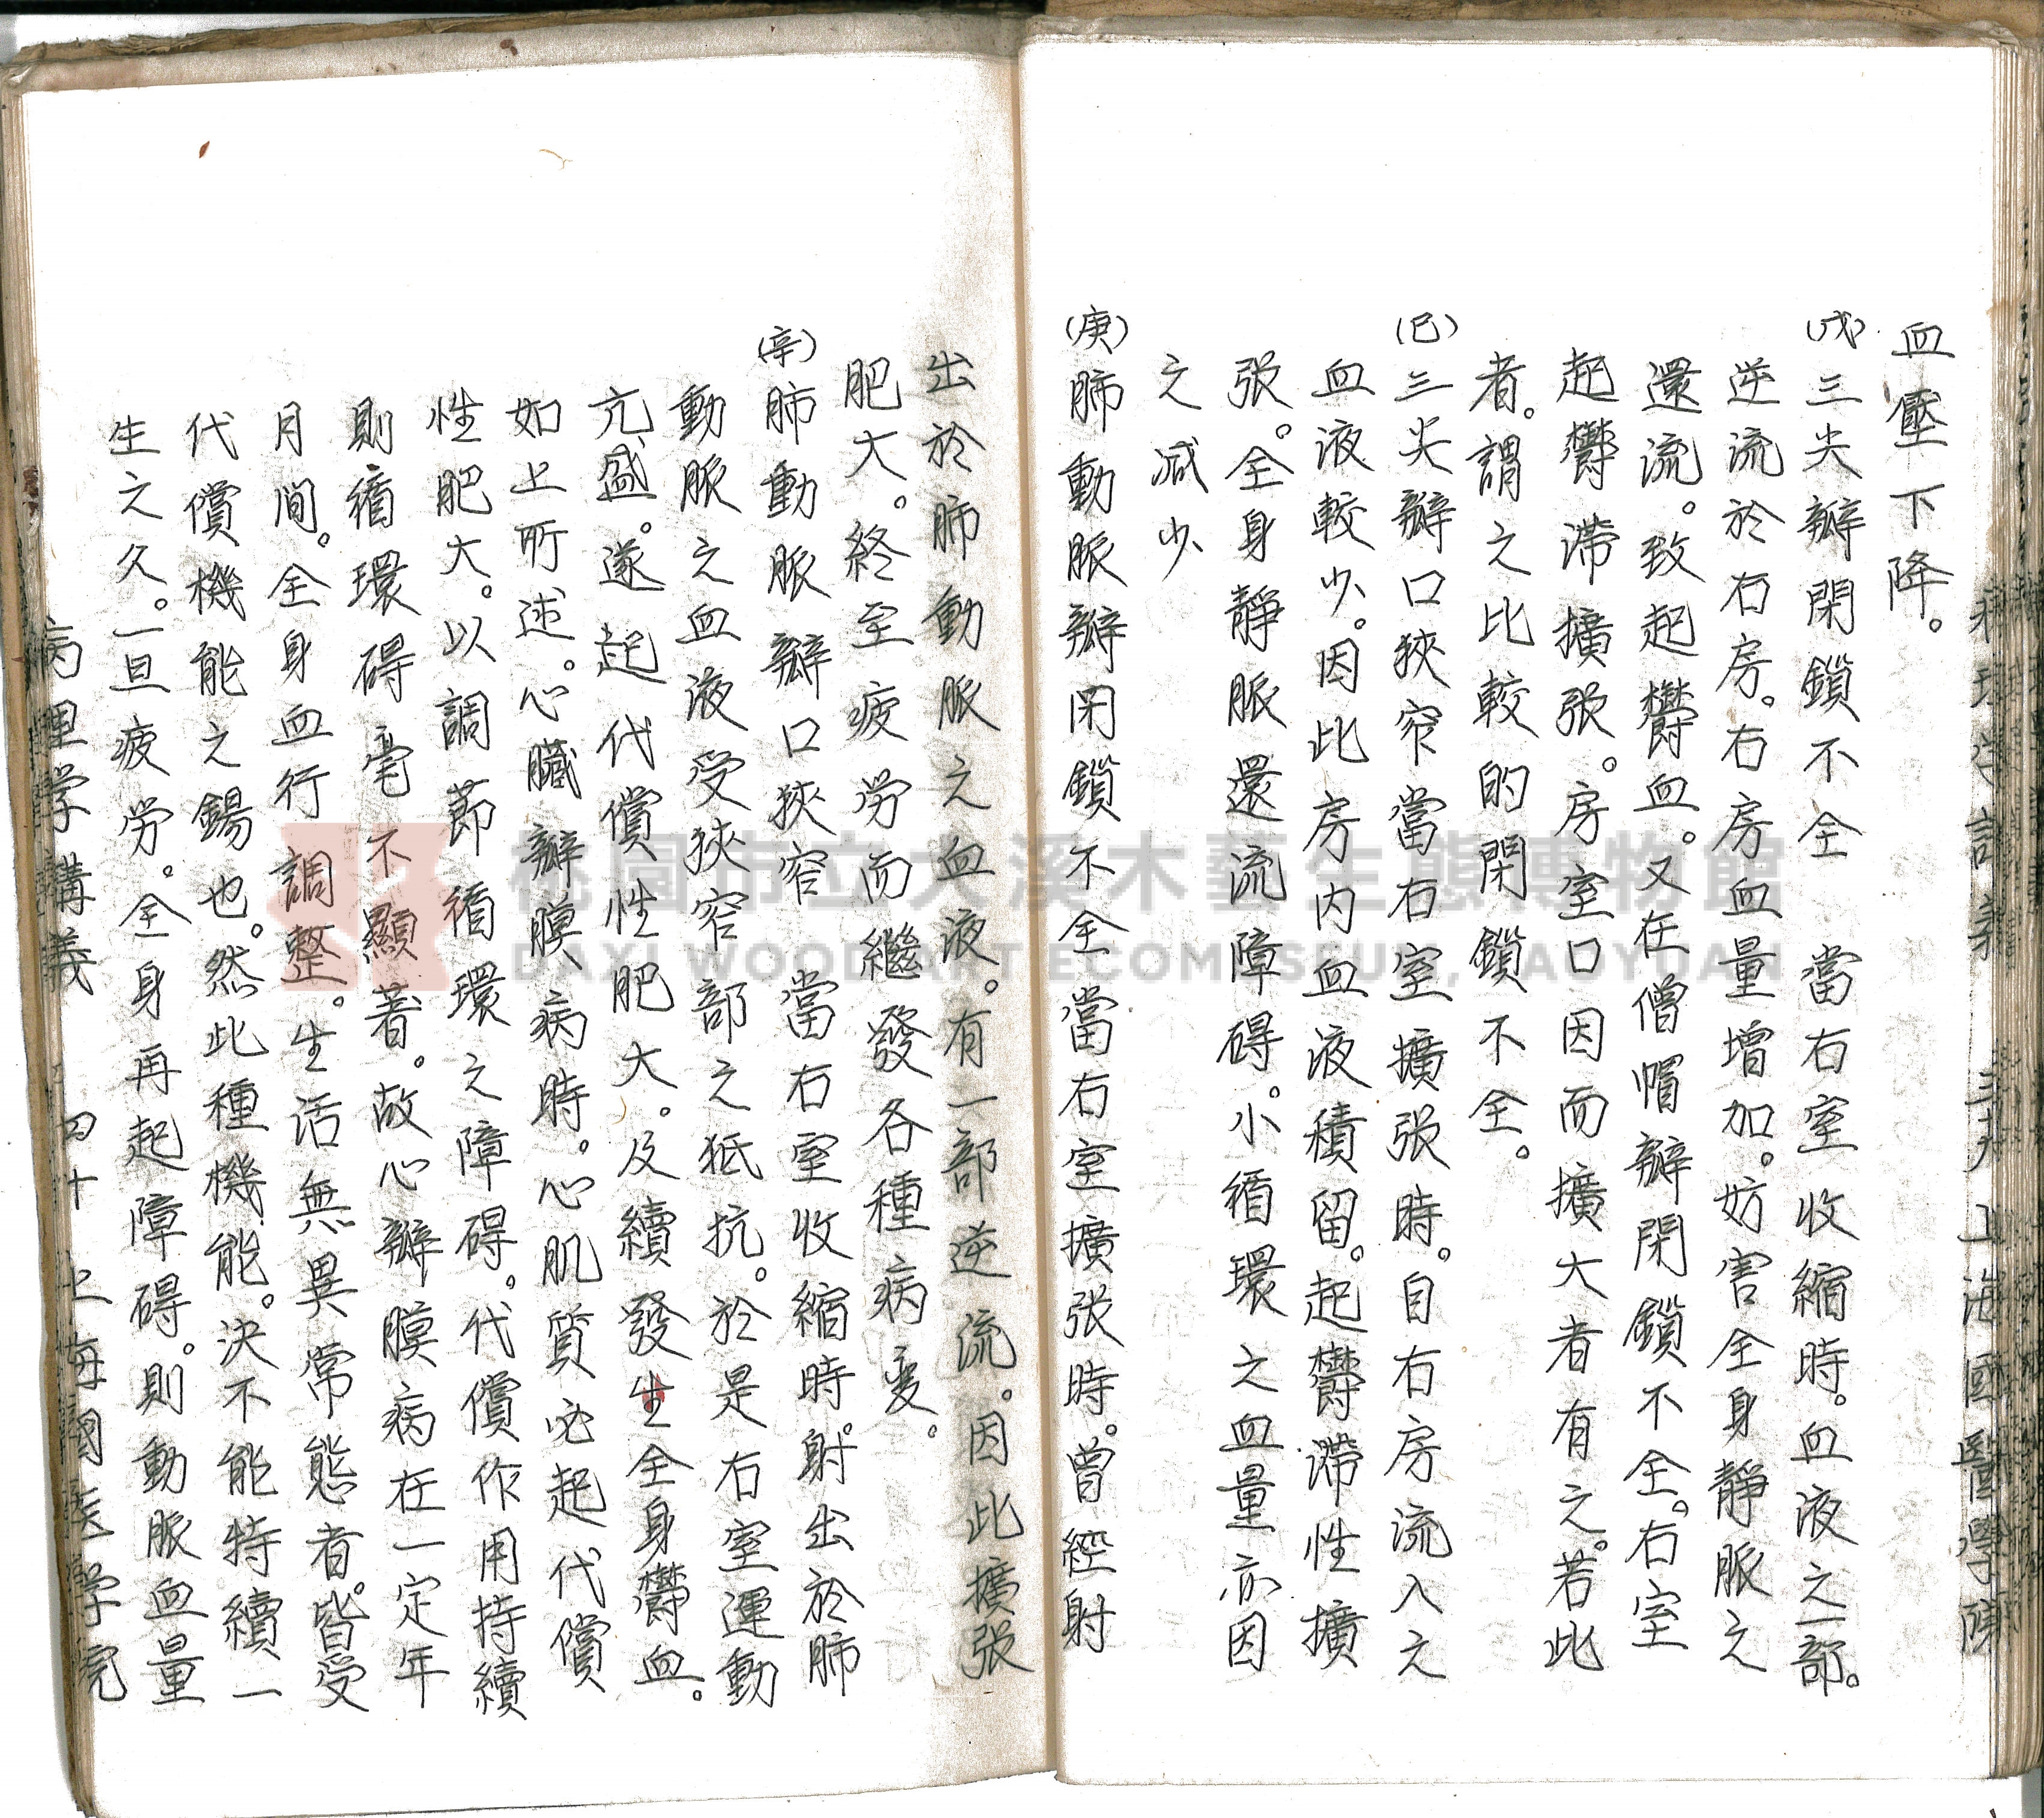 血壓下降。
(戊)三尖瓣閉鎖不全 當右室收縮時。血液之一部。
逆流於右房。右房血量增加。妨害全身靜脈之
還流。致起欝血。又在僧帽瓣閉鎖不全。右室
起欝滯擴張。房室口因而擴大者有之。若此
者。謂之比較的閉鎖不全。
(已)三尖瓣口狹窄當右室擴張時。自右房流入之
血液較少。因此房內血液積留。起欝滯性擴
張。全身靜脈還流障碍。小循環之血量亦因
之減少
(庚)肺動脈瓣閉鎖不全當右室擴張時。曾經射
出於肺動脈之血液。有一部逆流。因此擴張
肥大。終至疲労而繼發各種病変。
(辛)肺動脈瓣口狹窄 當右室收縮時。射出於肺
動脈之血液受狹窄部之抵抗。於是右室運動
亢盛。遂起代償性肥大。及續發生全身欝血。
如上所述。心臟瓣膜病時。心肌質必起代償
性肥大。以調節循環之障碍。代償作用持續
則循環碍毫不顯著。故心瓣膜病在一定年
月间。全身血行調整。生活無異常態者。皆受
代償機能之錫也。然此種機能。決不能特續一
生之久。一旦疲労。全身再起障碍。則動脈血量
病理学講義 四十 上海國医学院
桃園市立大溪木藝生態博物館
DAXI WOODART ECOMUSEUM, TAOYUAN